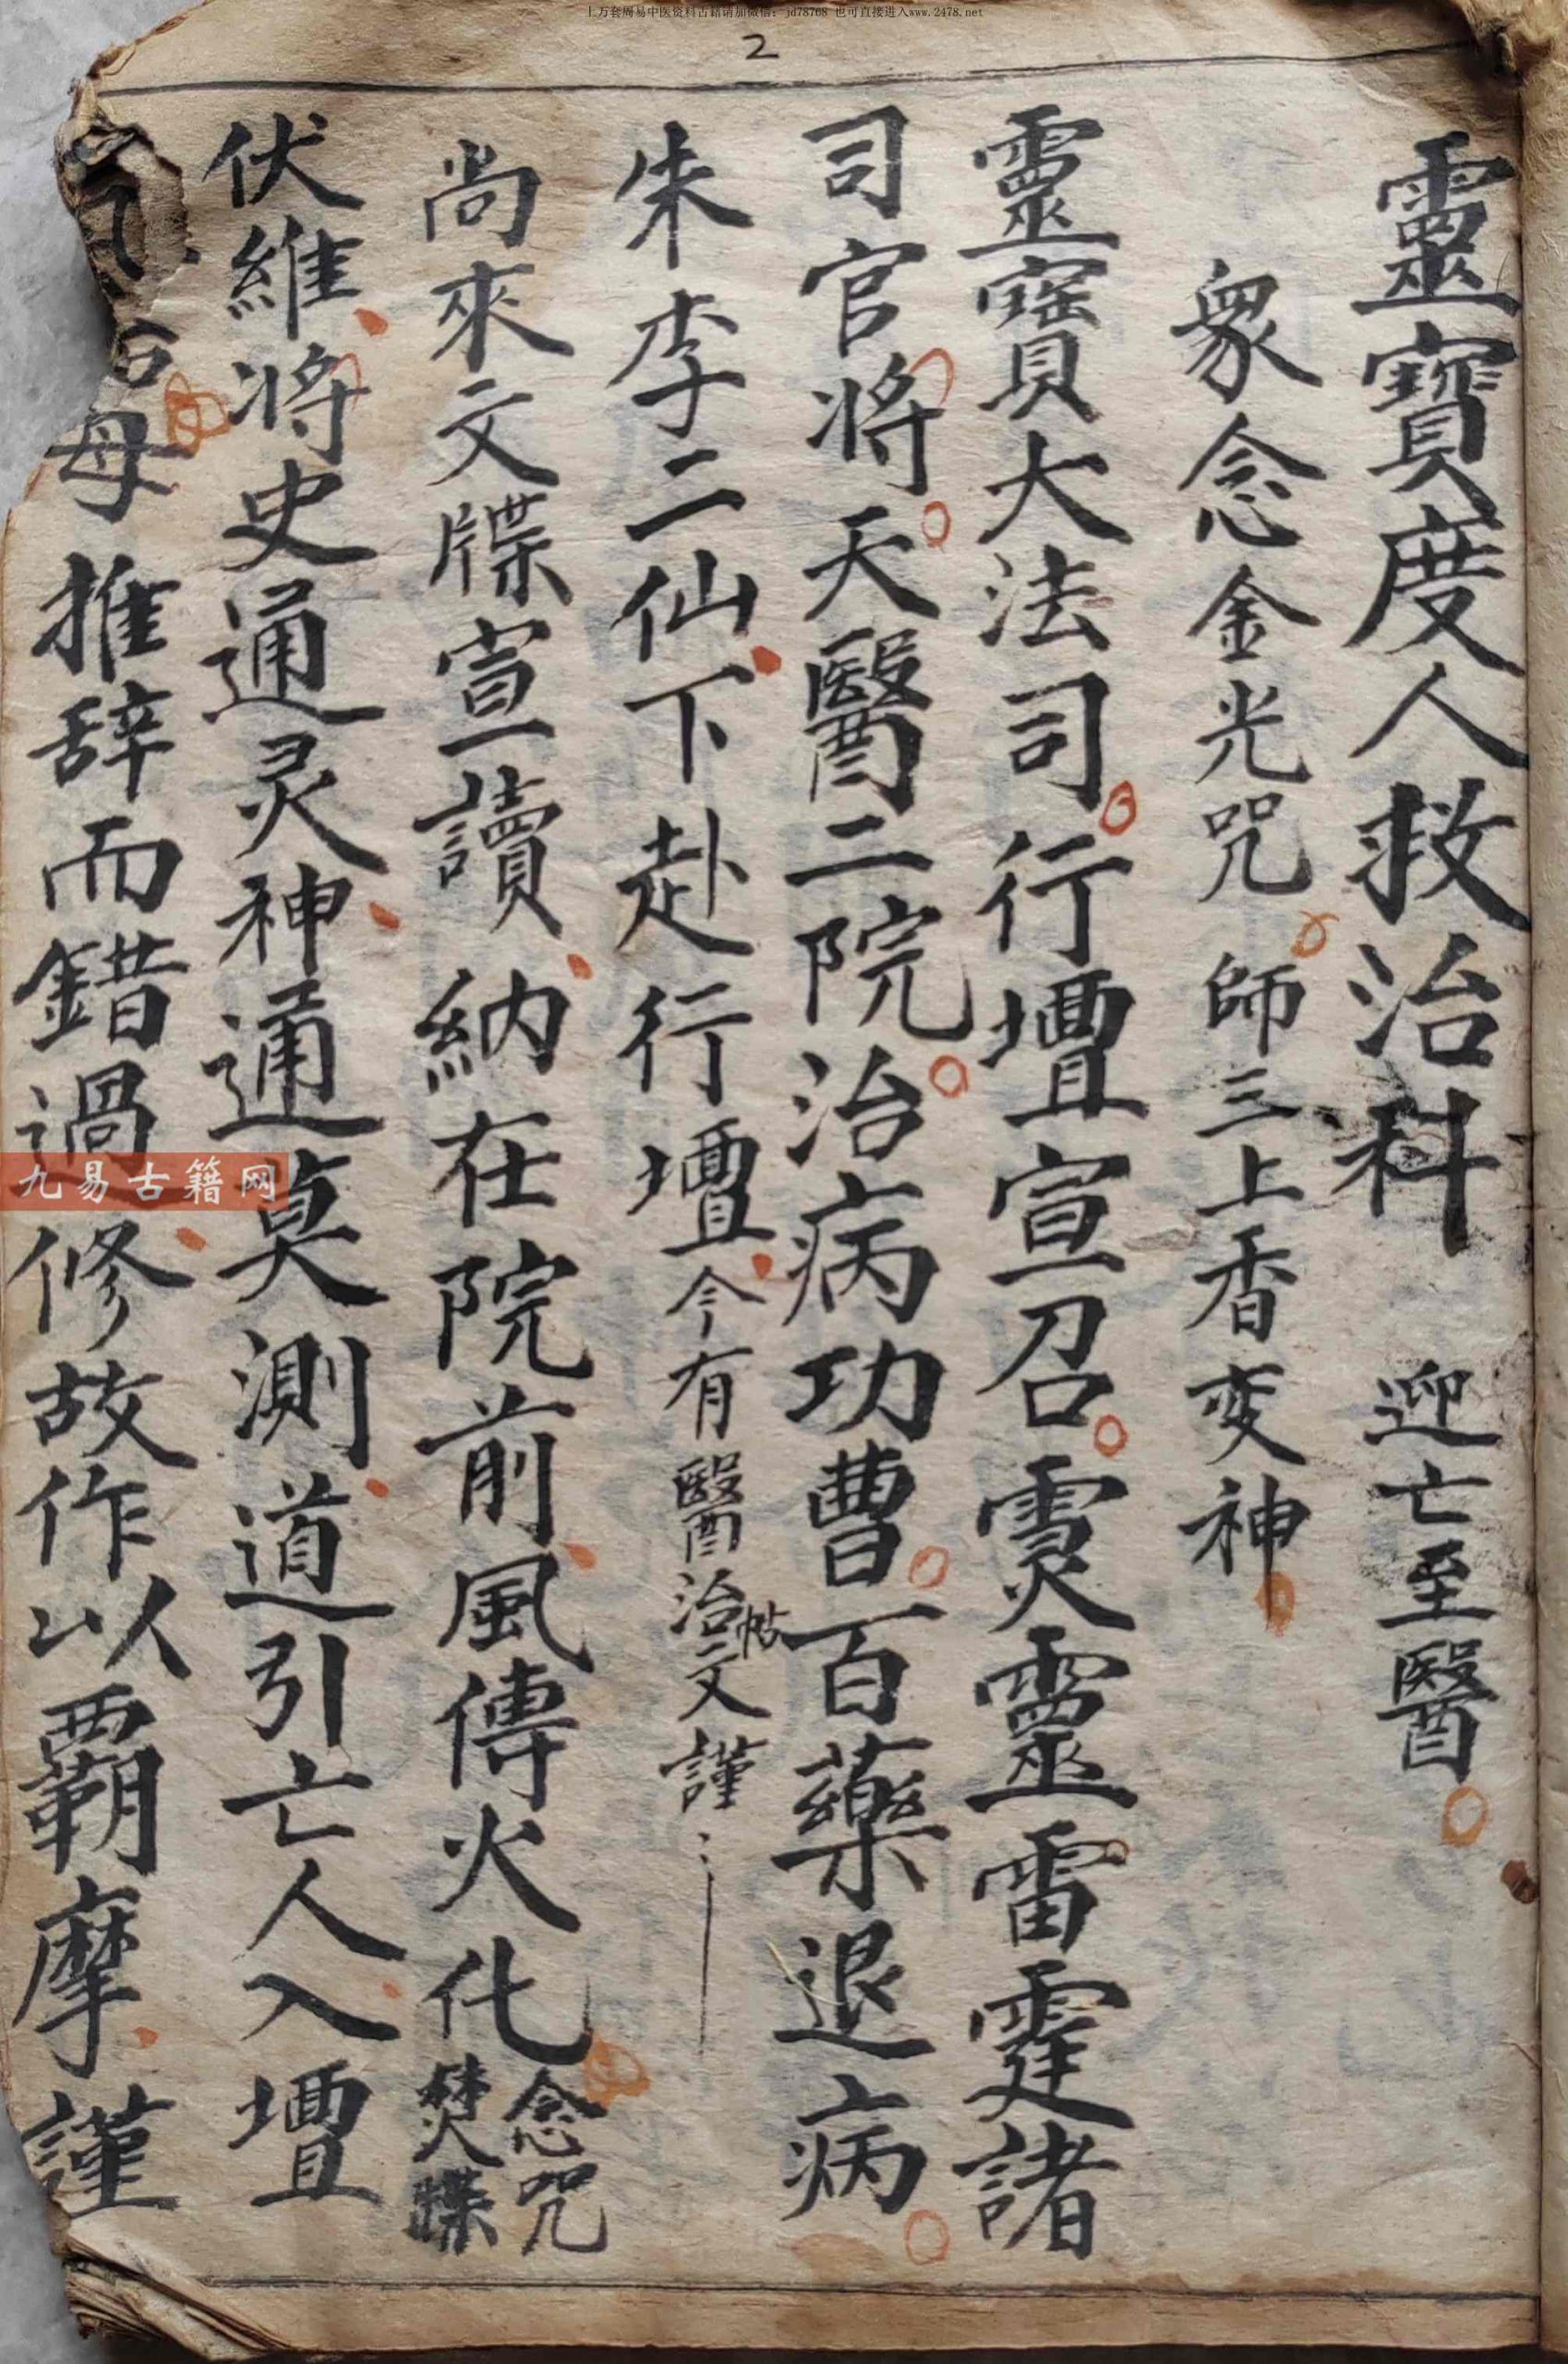 上万套周易中医资料古籍请加微信：jd78768 也可直接进入www.2478.net
2
靈寶度人救治科 迎亡至醫
眾念金光咒 師三上香变神
靈寶大法司行壇宣召霊靈雷霆諸
司官将天醫二院治病功曹百藥退病
朱李二仙下赴行壇今有醫治帖文謹
尚來文牒宣讀納在院前風傳火化念咒焚牒
伏維将史通灵神通莫測道引亡人入壇
母推辞而錯過修故作以覇摩謹
九易古籍网